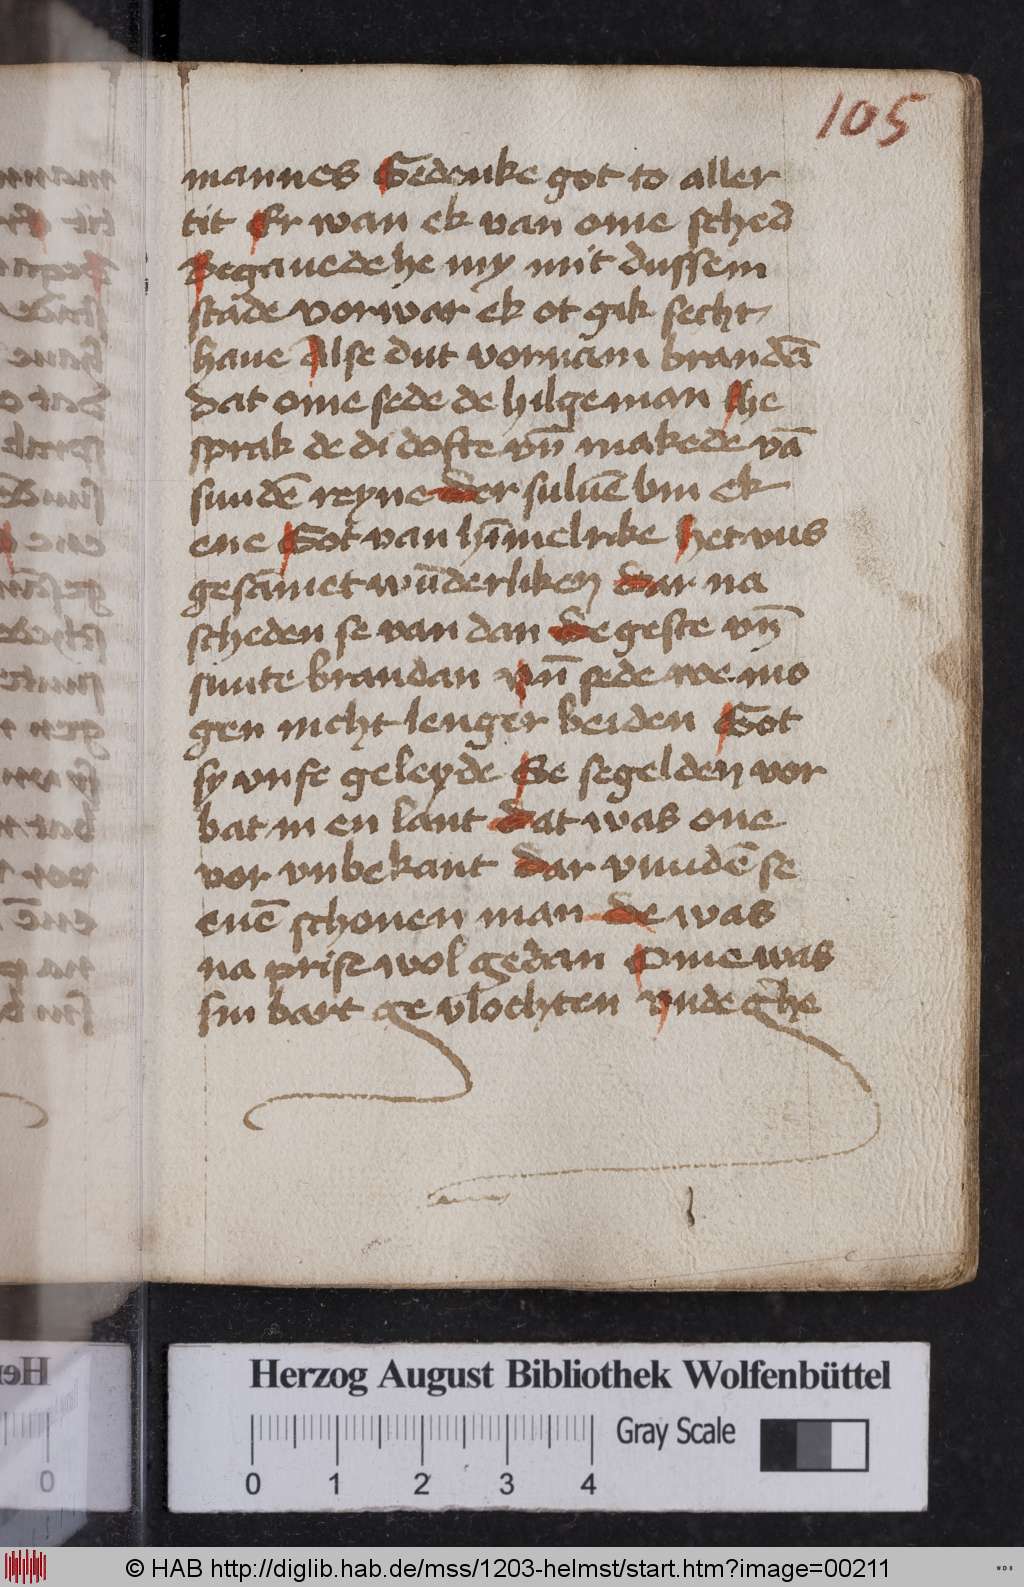 105
mannes Gedenke got to aller
tit Er wan ek van ome sched
Begauede he my mit dussem
stade vorwar ek ot gik secht
haue Alse dut vornam brandā
dat ome sede de hilge man he
sprak de di dofte vn̄ makede vā
sundē reyne der suluē bin ek
ene Got van hīmelrike het vns
gesāmet wūderliken dar na
scheden se van dan de geste vn̄
sunte brandan vn̄ sede we mo
gen nicht lenger beiden Got
sy vnse geleyde Se segelden vor
bat in en lant dat was one
vor vnbekant dar vundē se
enē schonen man de was
na prise wol gedan Ome was
sin bart ge vlochten vnde ghe
Herzog August Bibliothek Wolfenbüttel
Gray Scale
0 1 2 3 4
© HAB http://diglib.hab.de/mss/1203-helmst/start.htm?image=00211